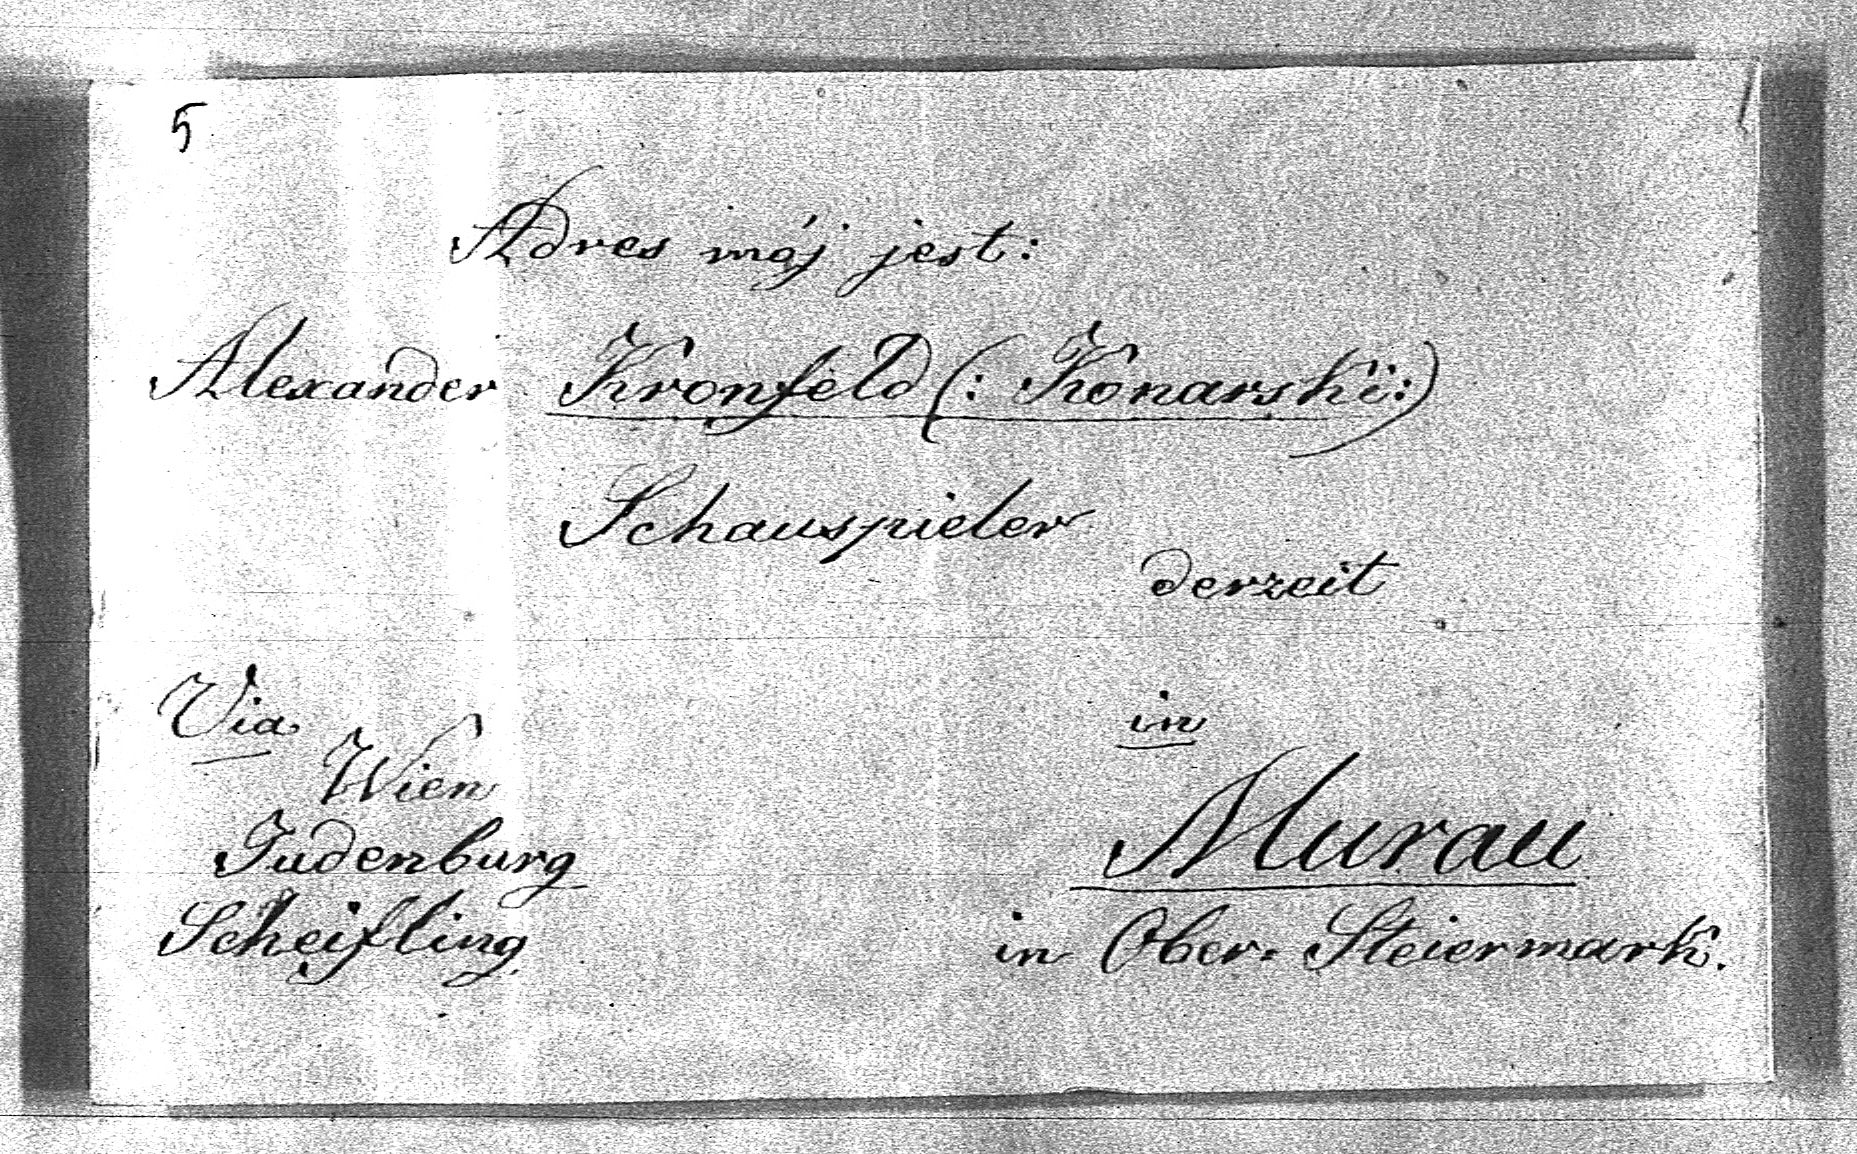 5
Adres mój jest:
Alexander Kronfeld (: Konarski:)
Schauspieler
derzeit
Via
Wien
Judenburg
Scheifling
in
Murau
in Ober-Steiermark.